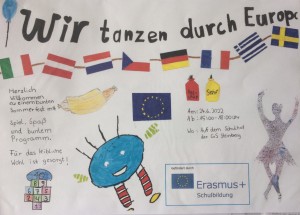 Wir tanzen durch Europa
Herzlich
Willkommen
zu einem bunten
Sommerfest mit
Spiel, Spaß
und buntem
Programm.
Für das leibliche
Wohl ist gesorgt!
Am: 24.6.2022
Ab: 15:00 - 18:00 Uhr
Wo: Auf dem Schulhof
der
Erasmus+
Schulbildung